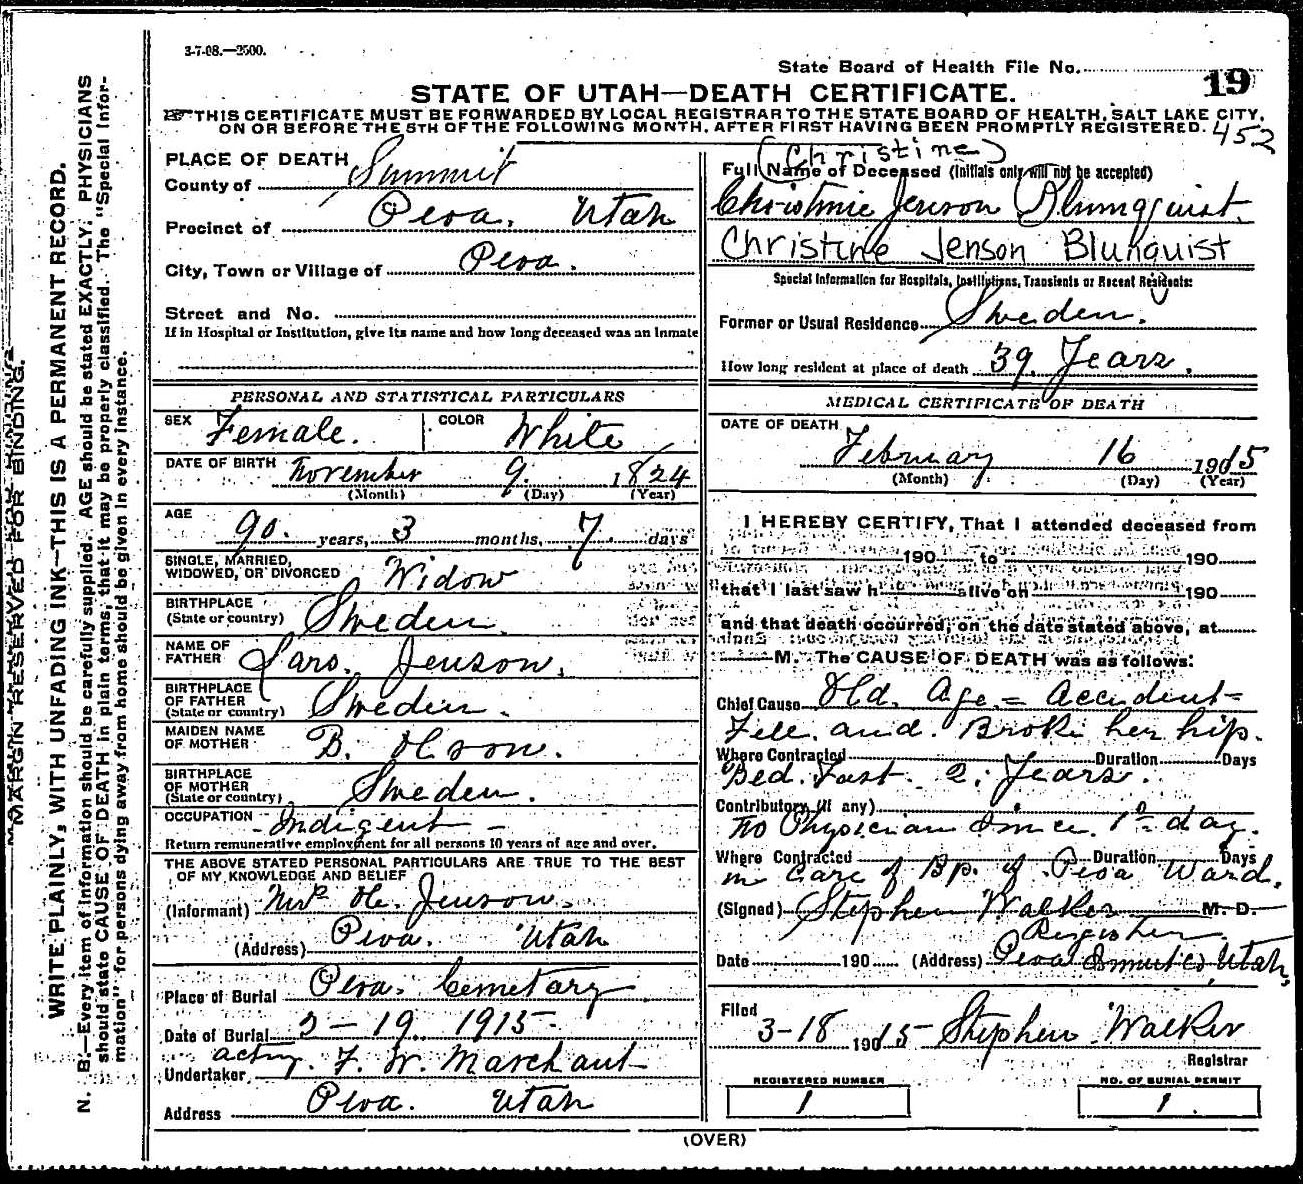 3-7-08.—2500.
State Board of Health File No. 19
STATE OF UTAH—DEATH CERTIFICATE.
THIS CERTIFICATE MUST BE FORWARDED BY LOCAL REGISTRAR TO THE STATE BOARD OF HEALTH, SALT LAKE CITY,
ON OR BEFORE THE 5TH OF THE FOLLOWING MONTH, AFTER FIRST HAVING BEEN PROMPTLY REGISTERED.
452
MARGIN RESERVED FOR BINDING.
WRITE PLAINLY, WITH UNFADING INK—THIS IS A PERMANENT RECORD.
N. B.—Every item of information should be carefully supplied. AGE should be stated EXACTLY. PHYSICIANS
should state CAUSE OF DEATH in plain terms, that it may be properly classified. The "Special Infor-
mation" for persons dying away from home should be given in every instance.
PLACE OF DEATH
County of Summit
Precinct of Peoa, Utah
City, Town or Village of Peoa.
Street and No.
If in Hospital or Institution, give its name and how long deceased was an inmate
PERSONAL AND STATISTICAL PARTICULARS
SEX Female. COLOR White
DATE OF BIRTH November 9. 1824
(Month) (Day) (Year)
AGE
90. years, 3 months, 7 days
SINGLE, MARRIED,
WIDOWED, OR DIVORCED Widow
BIRTHPLACE
(State or country) Sweden.
NAME OF
FATHER Lars. Jenson.
BIRTHPLACE
OF FATHER
(State or country) Sweden.
MAIDEN NAME
OF MOTHER B. Olson.
BIRTHPLACE
OF MOTHER
(State or country) Sweden.
OCCUPATION - Indigent -
Return remunerative employment for all persons 10 years of age and over.
THE ABOVE STATED PERSONAL PARTICULARS ARE TRUE TO THE BEST
OF MY KNOWLEDGE AND BELIEF
(Informant) Jenson.
(Address) Peoa. Utah
Place of Burial Peoa. Cemetary
Date of Burial 2-19 1915.
Undertaker acting. F. W. Marchant
Address Peoa. Utah
(Christine)
Full Name of Deceased (Initials only will not be accepted)
Christinie Jenson Blumquist.
Christine Jenson Blunquist
Special Information for Hospitals, Institutions, Transients or Recent Residents:
Former or Usual Residence Sweden.
How long resident at place of death 39 Years.
MEDICAL CERTIFICATE OF DEATH
DATE OF DEATH
February 16 1915
(Month) (Day) (Year)
I HEREBY CERTIFY, That I attended deceased from
190 to 190
that I last saw h alive on 190
and that death occurred, on the date stated above, at
M. The CAUSE OF DEATH was as follows:
Chief Cause Old. Age.= Accident=
Fell and. Broke her hip.
Where Contracted Duration Days
Bed. Fast. 2. Years.
Contributory (if any)
No Physician Since. 1st day.
Where Contracted Duration Days
in Care of Bp. of Peoa Ward.
(Signed) Stephen Walker M. D.
Register
Date 190 (Address) Peoa Summit Co, Utah,
Filed 3-18 1915 Stephen Walker
Registrar
REGISTERED NUMBER
1
NO. OF BURIAL PERMIT
1.
(OVER)